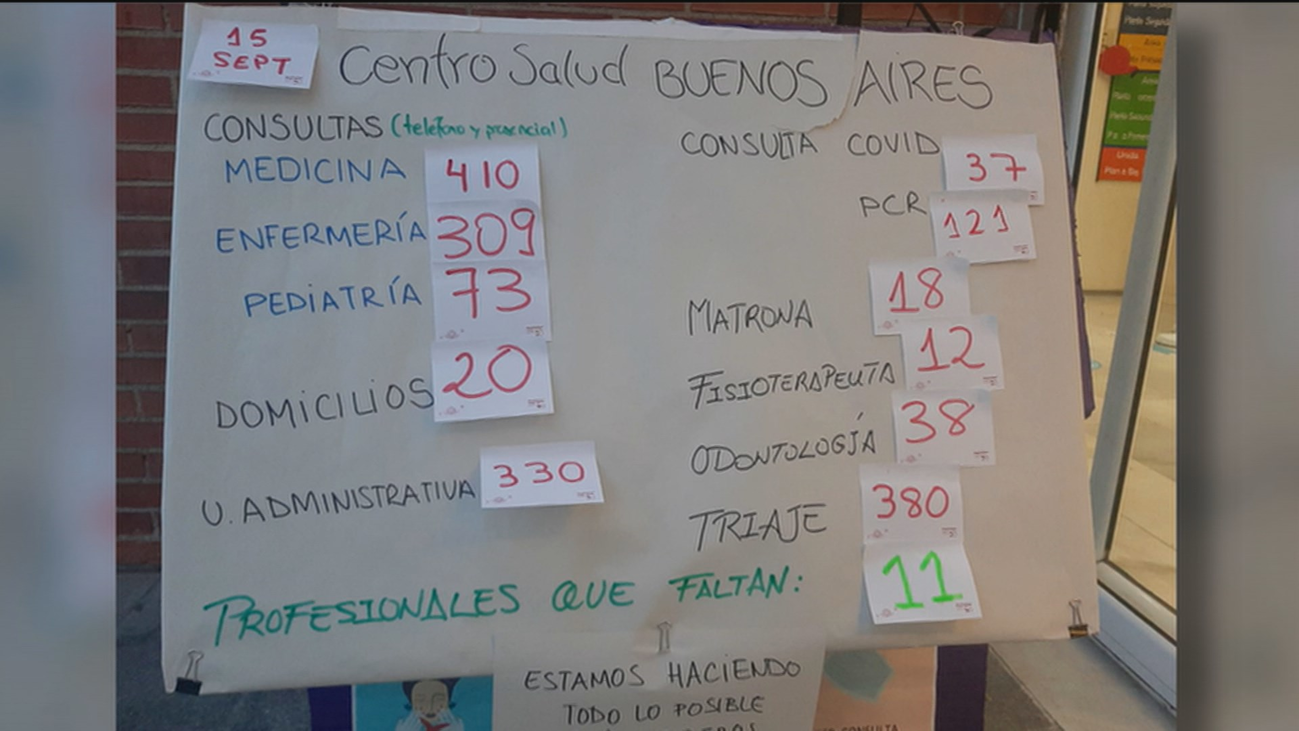 15
SEPT
Centro Salud BUENOS AIRES
CONSULTAS (teléfono y presencial)
MEDICINA 410
ENFERMERÍA 309
PEDIATRÍA 73
DOMICILIOS 20
U. ADMINISTRATIVA 330
CONSULTA COVID 37
PCR 121
MATRONA 18
FISIOTERAPEUTA 12
ODONTOLOGÍA 38
TRIAJE 380
PROFESIONALES QUE FALTAN: 11
ESTAMOS HACIENDO
TODO LO POSIBLE